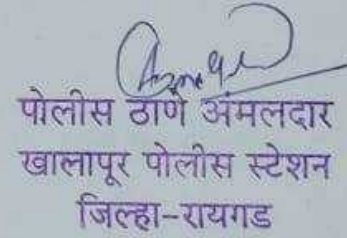 पोलीस ठाणे अंमलदार
खालापूर पोलीस स्टेशन
जिल्हा-रायगड